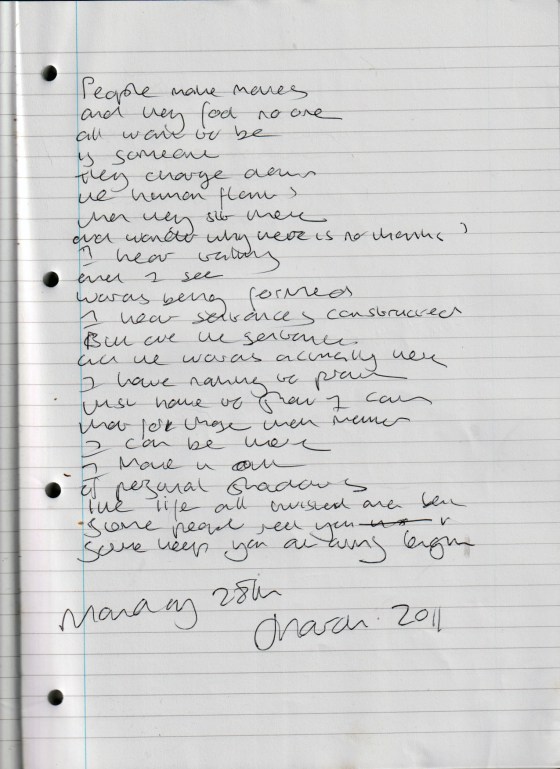 People make moves
and they fool no one
all want to be
is someone
they change down
the human flaw
when they sit there
and wonder why there is no thanks
I hear talking
and I see
words being formed
I hear sentences constructed
But are the sentence
are the words actually here
I have nothing to prove
just have to
that for those
I can be there
I move in and
of personal shadows
The life all twisted and
Some people need you
Some keep you at arms length
Monday 28th
March. 2011